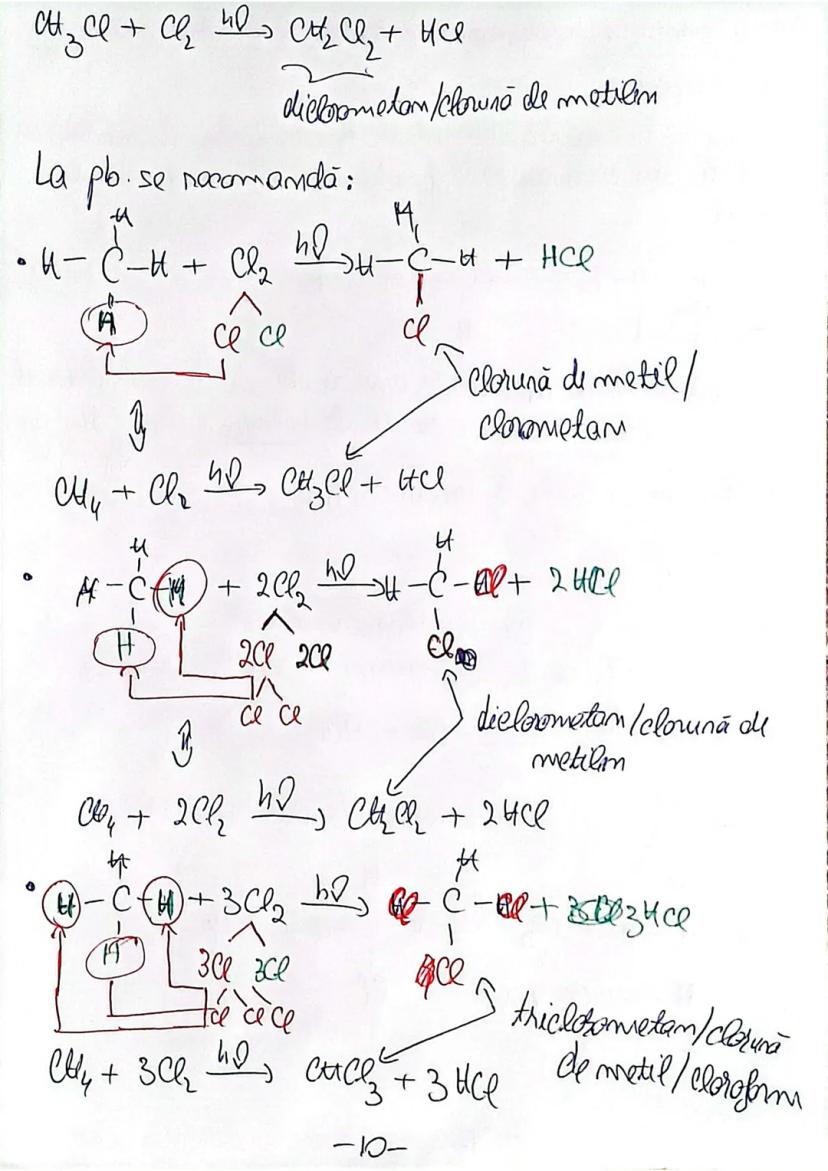 CH₃Cl + Cl₂ —hν→ CH₂Cl₂ + HCl
diclorometan/clorură de metilen
La pb. se recomandă:
H
• H – C – H + Cl₂ —hν→ H – C – H + HCl
H
H Cl Cl
Cl
clorură de metil/
clorometan
⇕
CH₄ + Cl₂ —hν→ CH₃Cl + HCl
H H
• H – C – H + 2Cl₂ —hν→ H – C – Cl + 2HCl
H 2Cl 2Cl Cl
Cl Cl
diclorometan/clorură de
metilen
⇕
CH₄ + 2Cl₂ —hν→ CH₂Cl₂ + 2HCl
H H
• H – C – H + 3Cl₂ —hν→ Cl – C – Cl + 3HCl
H 3Cl 3Cl Cl
Cl Cl Cl
triclorometan/clorură
de metil/cloroform
CH₄ + 3Cl₂ —hν→ CHCl₃ + 3HCl
–10–